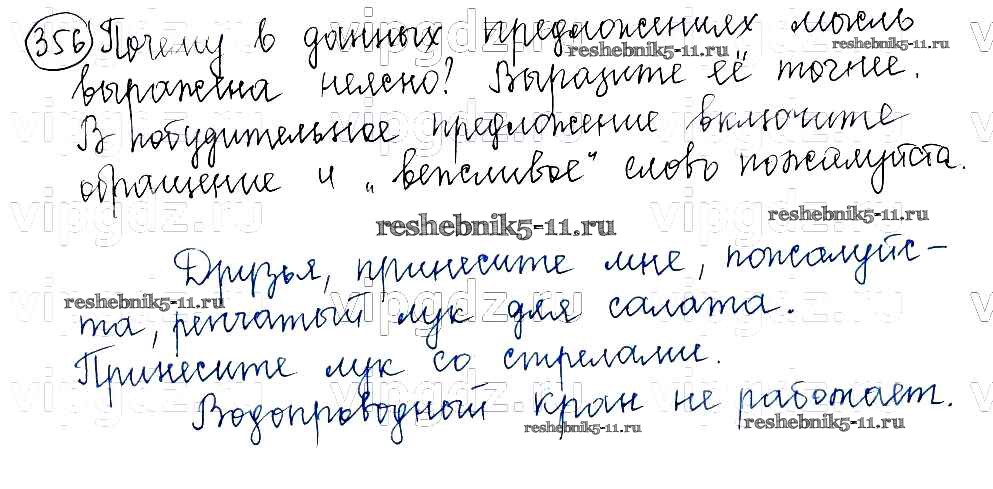 356 Почему в данных предложениях мысль
reshebnik5-11.ru
выражена неясно? Выразите её точнее.
В побудительное предложение включите
обращение и „вежливое" слово пожалуйста.
reshebnik5-11.ru
reshebnik5-11.ru
Друзья, принесите мне, пожалуйс-
reshebnik5-11.ru
та, репчатый лук для салата.
Принесите лук со стрелами.
Водопроводный кран не работает.
reshebnik5-11.ru
reshebnik5-11.ru
vipgdz.ru
vipgdz.ru
vipgdz.ru